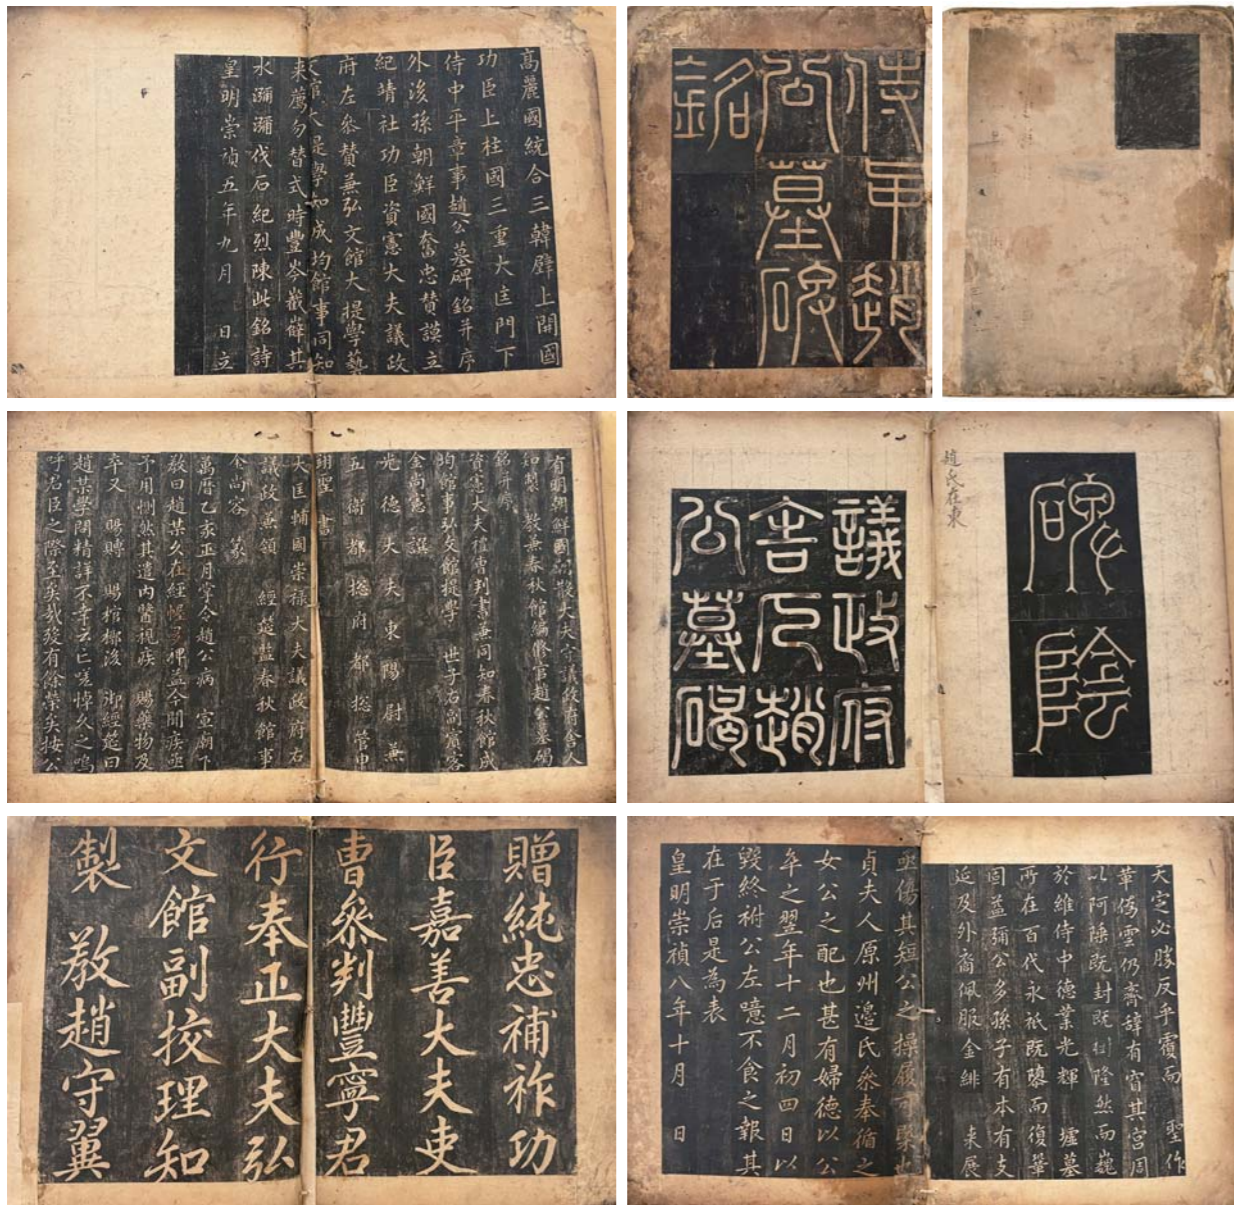 高麗國統合三韓壁上開國
功臣上柱國三重大匡門下
侍中平章事趙公墓碑銘并序
外後孫朝鮮國奮忠贊謨立
紀靖社功臣資憲大夫議政
府左參贊兼弘文館大提學藝
文館大提學知成均館事同知
來薦勿替式時豐岑嶻嶭其
水瀰瀰伐石紀烈陳此銘詩
皇明崇禎五年九月 日立
侍中趙
公墓碑
銘
有明朝鮮國朝散大夫守議政府舍人
知製 教兼春秋館編修官趙公墓碣
銘并序
資憲大夫禮曹判書兼同知春秋館成
均館事弘文館提學 世子右副賓客
金尚憲 譔
光德大夫東陽尉兼
五衛都摠府都摠管申
翊聖 書
大匡輔國崇祿大夫議政府右
議政兼領 經筵監春秋館事
金尚容 篆
萬曆乙未正月掌令趙公病 宣廟下
教曰趙某久在經幄多裨益今聞疾亟
予用惻然其遣內醫視疾 賜藥物及
卒又 賜賻 賜棺槨後 御經筵曰
趙某學問精詳不幸云亡嗟悼久之嗚
呼君臣之際至矣哉歿有餘榮矣按公
碑陰
趙氏在東
議政府
舍人趙
公墓碣
贈純忠補祚功
臣嘉善大夫吏
曹參判豐寧君
行奉正大夫弘
文館副校理知
製 敎趙守翼
天定必勝反乎覆而 聖作
雲仍齊辭有其宮周
以阿既封既隆然而巍
於維侍中德業光輝 墟墓
所在百代永祗既隳而復肇
固益彌公多孫子有本有支
延及外裔佩服金緋 來展
亟傷其短公之操履可槩也
貞夫人原州邊氏參奉循之
女公之配也甚有婦德以公
卒之翌年十二月初四日以
毀終祔公左噫不食之報其
在于后是為表
皇明崇禎八年十月 日